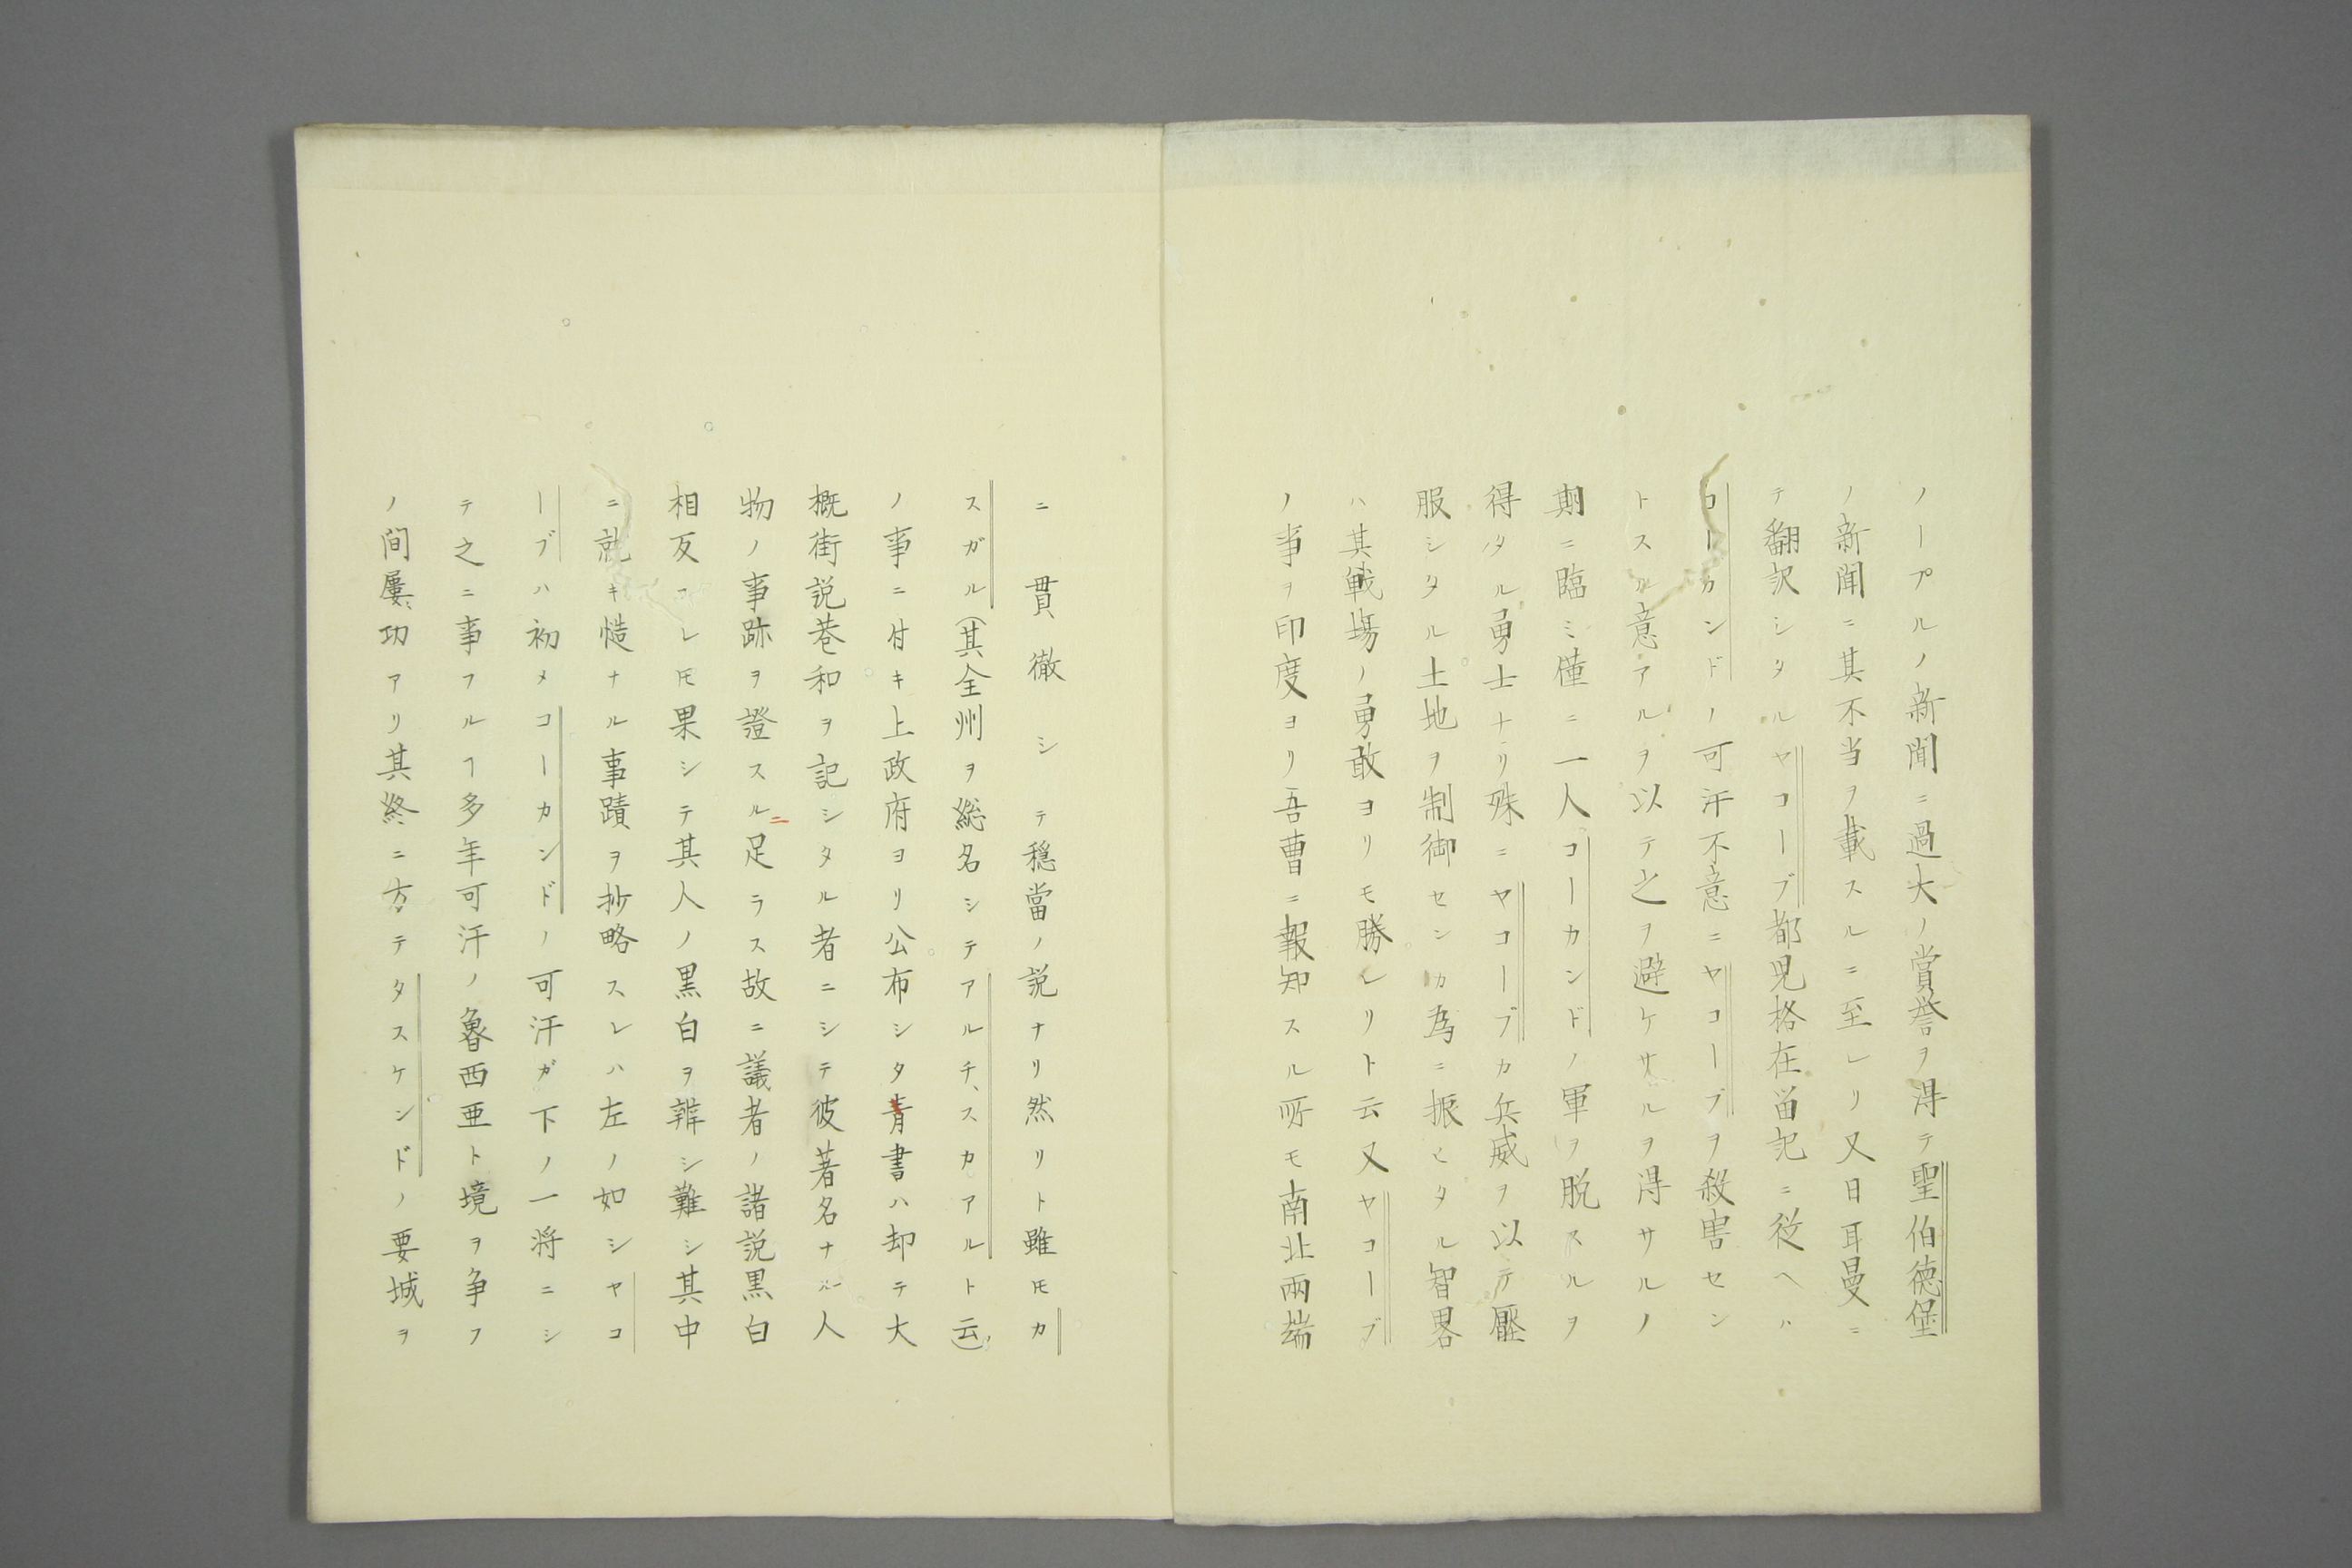 ノープルノ新聞ニ過大ノ賞誉ヲ得テ聖伯徳堡
ノ新聞ニ其不当ヲ載スルニ至レリ又日耳曼ニ
テ翻訳シタルヤコーブ都児格在留記ニ従ヘハ
コーカンドノ可汗不意ニヤコーブヲ殺害セン
トスル意アルヲ以テ之ヲ避ケサルヲ得サルノ
期ニ臨ミ僅ニ一人コーカンドノ軍ヲ脱スルヲ
得タル勇士ナリ殊ニヤコーブカ兵威ヲ以テ壓
服シタル土地ヲ制御センカ為ニ振ヒタル智畧
ハ其戦場ノ勇敢ヨリモ勝レリト云又ヤコーブ
ノ事ヲ印度ヨリ吾曹ニ報知スル所モ南北両端
ニ貫徹シテ穏當ノ説ナリ然リト雖モカ
スガル(其全州ヲ総名シテアルチ、スカアルト云)
ノ事ニ付キ上政府ヨリ公布シタ青書ハ却テ大
概街説巷和ヲ記シタル者ニシテ彼著名ナル人
物ノ事跡ヲ證スルニ足ラス故ニ議者ノ諸説黒白
相反スレモ果シテ其人ノ黒白ヲ辨シ難シ其中
ニ就キ慥ナル事蹟ヲ抄略スレハ左ノ如シヤコ
ーブハ初メコーカンドノ可汗ガ下ノ一将ニシ
テ之ニ事フルヿ多年可汗ノ魯西亜ト境ヲ争フ
ノ間屢功アリ其終ニ方テタスケンドノ要城ヲ